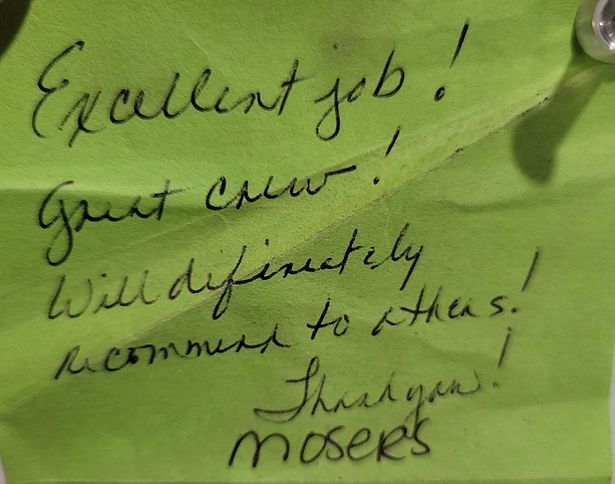 Excellent job!
Great crew!
Will defineately
recommend to others!
Thank you!
MOSERS